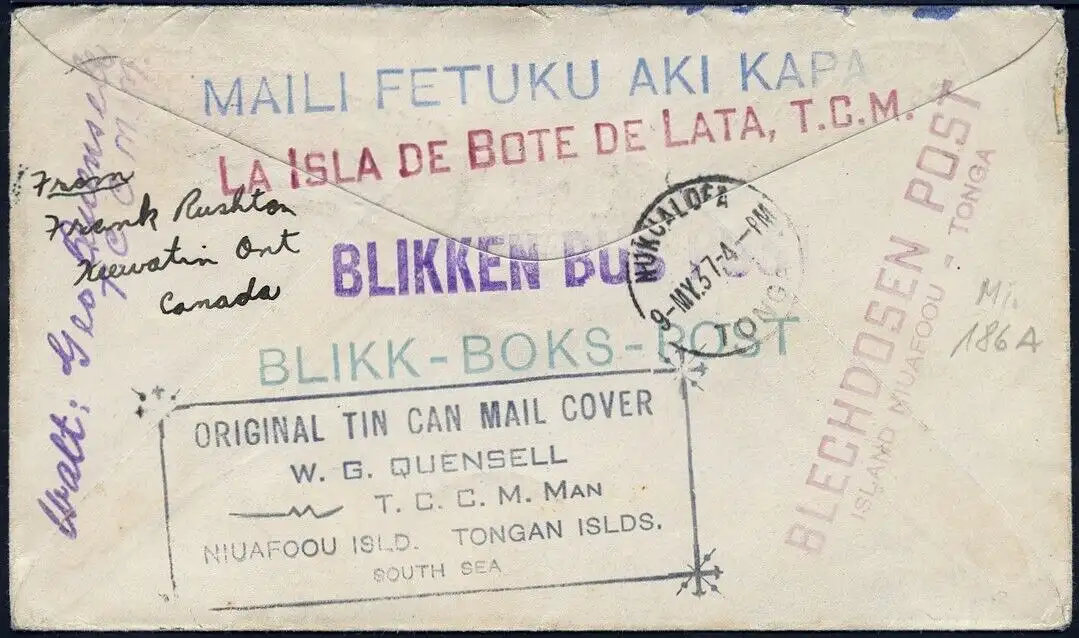 MAILI FETUKU AKI KAPA
LA ISLA DE BOTE DE LATA, T.C.M.
From
Frank Rushton
Keewatin Ont
Canada
BLIKKEN
BLIKK-BOKS-POST
NUKUALOFA
9-MY.37-4-PM
TONGA
ORIGINAL TIN CAN MAIL COVER
W. G. QUENSELL
T. C. C. M. MAN
NIUAFOOU ISLD. TONGAN ISLDS.
SOUTH SEA
Walt: Geo Quensell
T.C.C.M.M.
BLECHDOSEN POST
ISLAND NIUAFOOU - TONGA
Mi.
186A